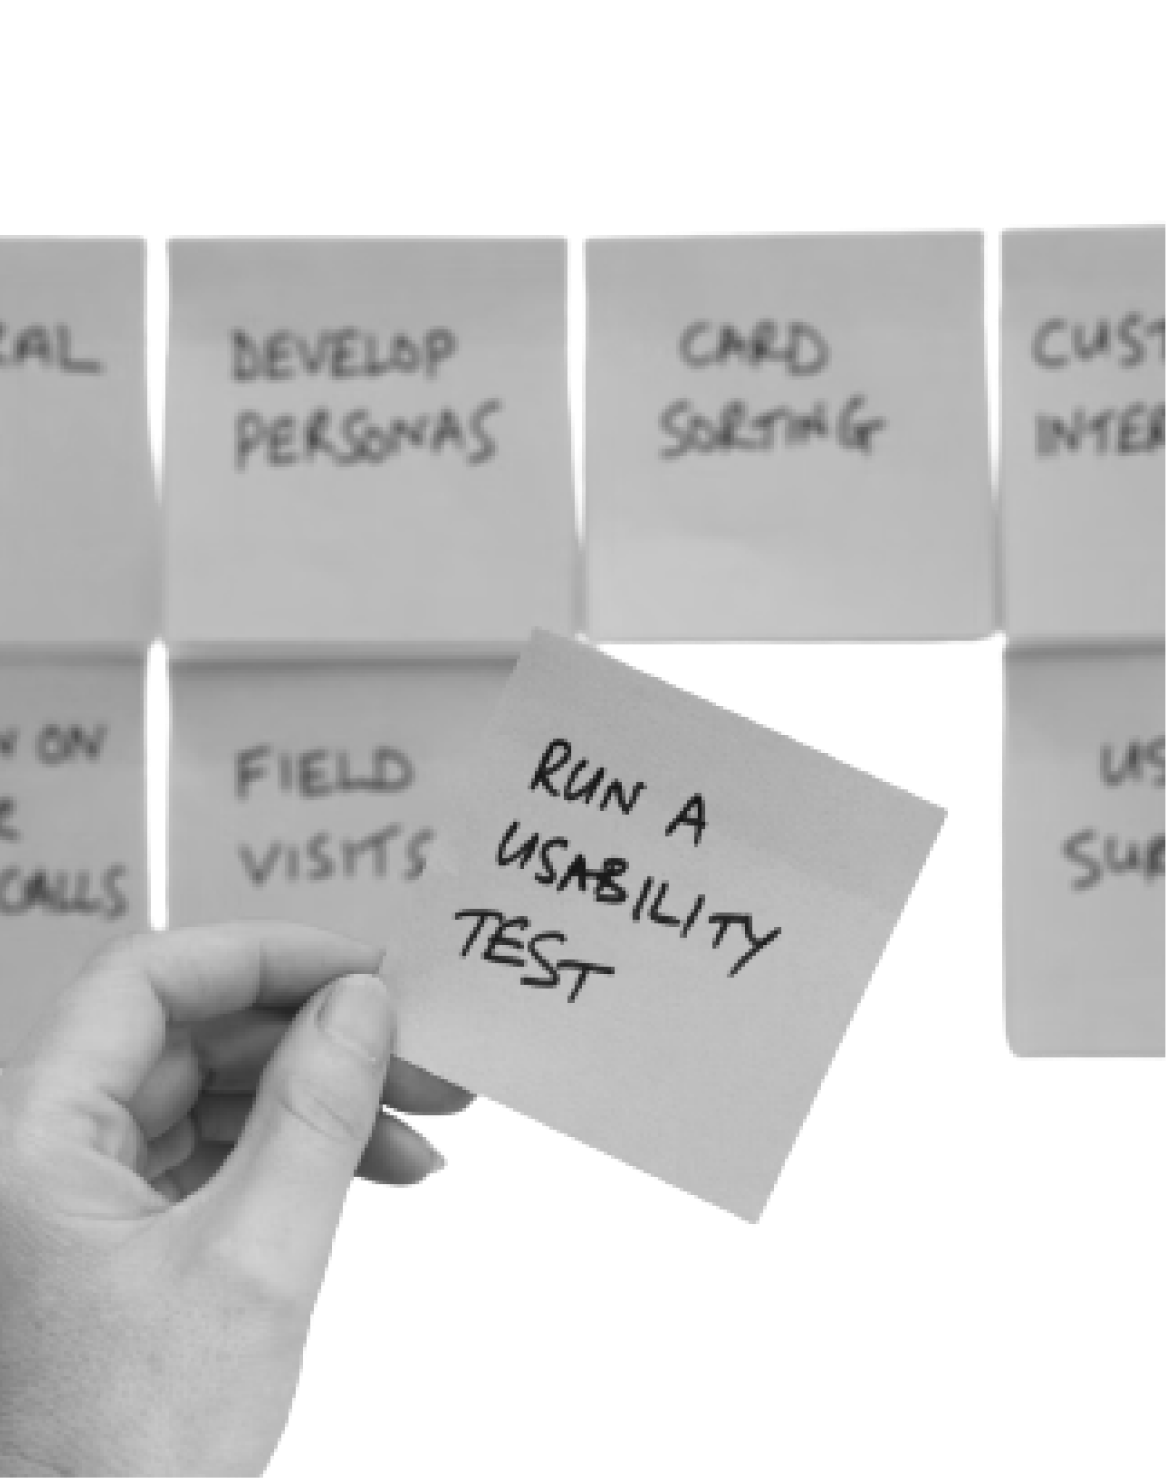 RAL
DEVELOP
PERSONAS
CARD
SORTING
CUST
INTER
ON
CALLS
FIELD
VISITS
RUN A
USABILITY
TEST
US
SUR